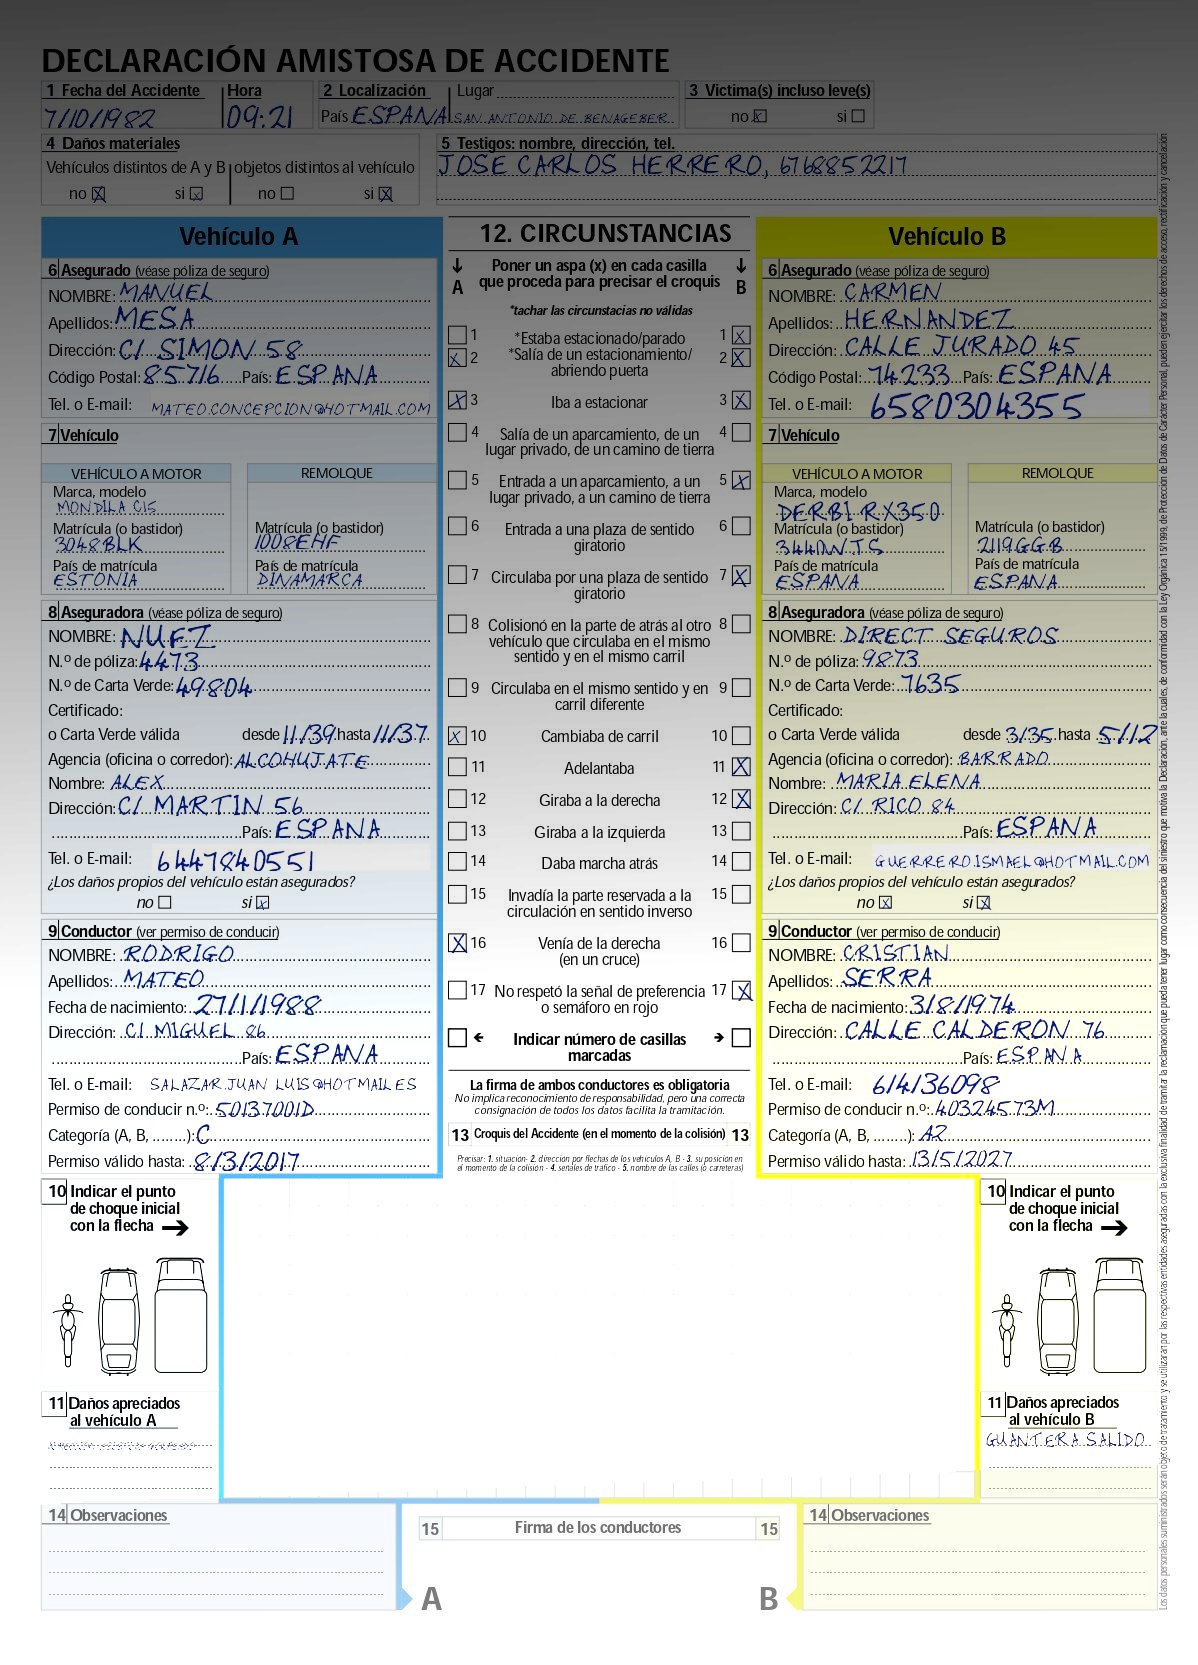 DECLARACIÓN AMISTOSA DE ACCIDENTE
1 Fecha del Accidente Hora 2 Localización Lugar 3 Victima(s) incluso leve(s)
7/10/1982 09:21 País ESPANA SAN ANTONIO DE BENAGEBER no X si
4 Daños materiales 5 Testigos: nombre, dirección, tel.
Vehículos distintos de A y B objetos distintos al vehículo JOSE CARLOS HERRERO, 6768852217
no X si X no si X
Vehículo A
6 Asegurado (véase póliza de seguro)
NOMBRE: MANUEL
Apellidos: MESA
Dirección: C/ SIMON 58
Código Postal: 85716 País: ESPANA
Tel. o E-mail: MATEO.CONCEPCION@HOTMAIL.COM
7 Vehículo
VEHÍCULO A MOTOR REMOLQUE
Marca, modelo
MONDILA C15
Matrícula (o bastidor) Matrícula (o bastidor)
3048BLK 1008EHF
País de matrícula País de matrícula
ESTONIA DINAMARCA
8 Aseguradora (véase póliza de seguro)
NOMBRE: NUEZ
N.º de póliza: 4473
N.º de Carta Verde: 49804
Certificado:
o Carta Verde válida desde 11/39 hasta 11/37
Agencia (oficina o corredor): ALCOHUJATE
Nombre: ALEX
Dirección: C/ MARTIN 56
País: ESPANA
Tel. o E-mail: 6447840551
¿Los daños propios del vehículo están asegurados?
no si X
9 Conductor (ver permiso de conducir)
NOMBRE: RODRIGO
Apellidos: MATEO
Fecha de nacimiento: 27/1/1988
Dirección: C/ MIGUEL 86
País: ESPANA
Tel. o E-mail: SALAZAR.JUAN LUIS@HOTMAIL.ES
Permiso de conducir n.º: 50137001D
Categoría (A, B, ........): C
Permiso válido hasta: 8/3/2017
12. CIRCUNSTANCIAS
Poner un aspa (x) en cada casilla
A que proceda para precisar el croquis B
*tachar las circunstacias no válidas
1 *Estaba estacionado/parado 1 X
X 2 *Salía de un estacionamiento/ 2 X
abriendo puerta
X 3 Iba a estacionar 3 X
4 Salía de un aparcamiento, de un 4
lugar privado, de un camino de tierra
5 Entrada a un aparcamiento, a un 5 X
lugar privado, a un camino de tierra
6 Entrada a una plaza de sentido 6
giratorio
7 Circulaba por una plaza de sentido 7 X
giratorio
8 Colisionó en la parte de atrás al otro 8
vehículo que circulaba en el mismo
sentido y en el mismo carril
9 Circulaba en el mismo sentido y en 9
carril diferente
X 10 Cambiaba de carril 10
11 Adelantaba 11 X
12 Giraba a la derecha 12 X
13 Giraba a la izquierda 13
14 Daba marcha atrás 14
15 Invadía la parte reservada a la 15
circulación en sentido inverso
X 16 Venía de la derecha 16
(en un cruce)
17 No respetó la señal de preferencia 17 X
o semáforo en rojo
Indicar número de casillas
marcadas
La firma de ambos conductores es obligatoria
No implica reconocimiento de responsabilidad, pero una correcta
consignación de todos los datos facilita la tramitación.
13 Croquis del Accidente (en el momento de la colisión) 13
Precisar: 1. situación- 2. dirección por flechas de los vehículos A, B - 3. su posición en
el momento de la colisión - 4. señales de tráfico - 5. nombre de las calles (o carreteras)
Vehículo B
6 Asegurado (véase póliza de seguro)
NOMBRE: CARMEN
Apellidos: HERNANDEZ
Dirección: CALLE JURADO 45
Código Postal: 74233 País: ESPANA
Tel. o E-mail: 6580304355
7 Vehículo
VEHÍCULO A MOTOR REMOLQUE
Marca, modelo
DERBI RX350
Matrícula (o bastidor) Matrícula (o bastidor)
3440WTS 2119GGB
País de matrícula País de matrícula
ESPANA ESPANA
8 Aseguradora (véase póliza de seguro)
NOMBRE: DIRECT SEGUROS
N.º de póliza: 9873
N.º de Carta Verde: 7635
Certificado:
o Carta Verde válida desde 3/35 hasta 5/12
Agencia (oficina o corredor): BARRADO
Nombre: MARIA ELENA
Dirección: C/ RICO 84
País: ESPANA
Tel. o E-mail: GUERRERO.ISMAEL@HOTMAIL.COM
¿Los daños propios del vehículo están asegurados?
no X si X
9 Conductor (ver permiso de conducir)
NOMBRE: CRISTIAN
Apellidos: SERRA
Fecha de nacimiento: 3/8/1974
Dirección: CALLE CALDERON 76
País: ESPANA
Tel. o E-mail: 614136098
Permiso de conducir n.º: 40324573M
Categoría (A, B, ........): A2
Permiso válido hasta: 13/5/2027
10 Indicar el punto
de choque inicial
con la flecha
11 Daños apreciados
al vehículo A
10 Indicar el punto
de choque inicial
con la flecha
11 Daños apreciados
al vehículo B
GUANTERA SALIDO
14 Observaciones
15 Firma de los conductores 15
A B
14 Observaciones
Los datos personales suministrados serán objeto de tratamiento y se utilizaran por las respectivas entidades aseguradas con la exclusiva finalidad de tramitar la reclamación que pueda tener lugar como consecuencia del siniestro que motiva la Declaración, ante la cuales, de conformidad con la Ley Orgánica 15/1999, de Protección de Datos de Carácter Personal, pueden ejercitar los derechos de acceso, rectificación y cancelación